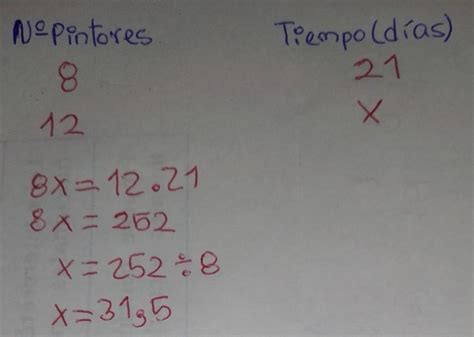 Nº Pintores Tiempo (días)
8 21
12 x
8x = 12.21
8x = 252
x = 252 ÷ 8
x = 31,5